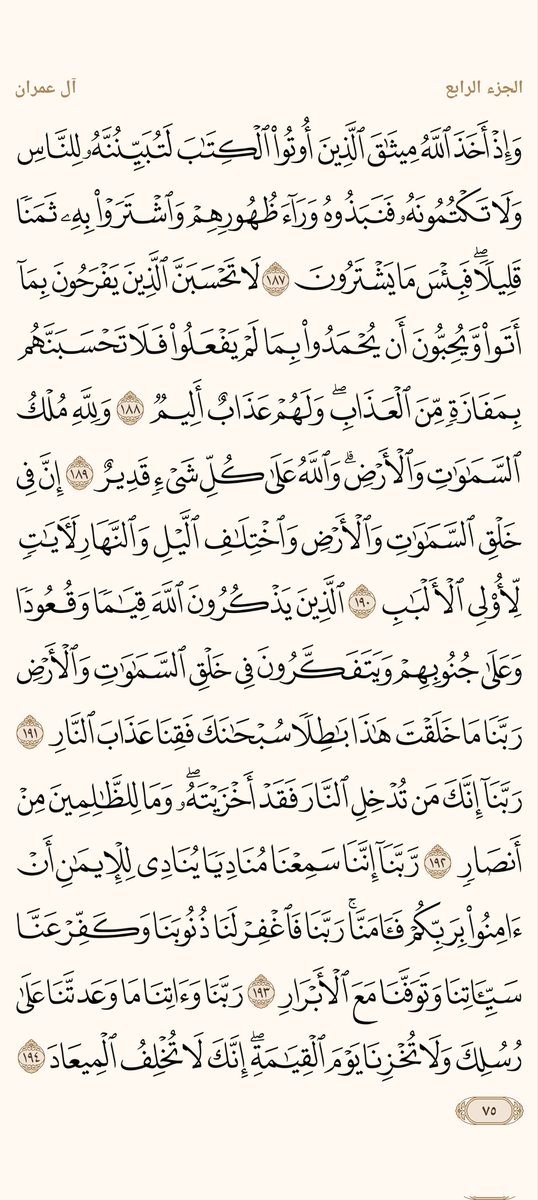 الجزء الرابع
آل عمران
وَإِذۡ أَخَذَ ٱللَّهُ مِيثَٰقَ ٱلَّذِينَ أُوتُواْ ٱلۡكِتَٰبَ لَتُبَيِّنُنَّهُۥ لِلنَّاسِ
وَلَا تَكۡتُمُونَهُۥ فَنَبَذُوهُ وَرَآءَ ظُهُورِهِمۡ وَٱشۡتَرَوۡاْ بِهِۦ ثَمَنٗا
قَلِيلٗاۖ فَبِئۡسَ مَا يَشۡتَرُونَ ١٨٧ لَا تَحۡسَبَنَّ ٱلَّذِينَ يَفۡرَحُونَ بِمَآ
أَتَواْ وَّيُحِبُّونَ أَن يُحۡمَدُواْ بِمَا لَمۡ يَفۡعَلُواْ فَلَا تَحۡسَبَنَّهُم
بِمَفَازَةٖ مِّنَ ٱلۡعَذَابِۖ وَلَهُمۡ عَذَابٌ أَلِيمٞ ١٨٨ وَلِلَّهِ مُلۡكُ
ٱلسَّمَٰوَٰتِ وَٱلۡأَرۡضِۗ وَٱللَّهُ عَلَىٰ كُلِّ شَيۡءٖ قَدِيرٌ ١٨٩ إِنَّ فِي
خَلۡقِ ٱلسَّمَٰوَٰتِ وَٱلۡأَرۡضِ وَٱخۡتِلَٰفِ ٱلَّيۡلِ وَٱلنَّهَارِ لَأٓيَٰتٖ
لِّأُوْلِي ٱلۡأَلۡبَٰبِ ١٩٠ ٱلَّذِينَ يَذۡكُرُونَ ٱللَّهَ قِيَٰمٗا وَقُعُودٗا
وَعَلَىٰ جُنُوبِهِمۡ وَيَتَفَكَّرُونَ فِي خَلۡقِ ٱلسَّمَٰوَٰتِ وَٱلۡأَرۡضِ
رَبَّنَا مَا خَلَقۡتَ هَٰذَا بَٰطِلٗا سُبۡحَٰنَكَ فَقِنَا عَذَابَ ٱلنَّارِ ١٩١
رَبَّنَآ إِنَّكَ مَن تُدۡخِلِ ٱلنَّارَ فَقَدۡ أَخۡزَيۡتَهُۥۖ وَمَا لِلظَّٰلِمِينَ مِنۡ
أَنصَارٖ ١٩٢ رَّبَّنَآ إِنَّنَا سَمِعۡنَا مُنَادِيٗا يُنَادِي لِلۡإِيمَٰنِ أَنۡ
ءَامِنُواْ بِرَبِّكُمۡ فَـَٔامَنَّاۚ رَبَّنَا فَٱغۡفِرۡ لَنَا ذُنُوبَنَا وَكَفِّرۡ عَنَّا
سَيِّـَٔاتِنَا وَتَوَفَّنَا مَعَ ٱلۡأَبۡرَارِ ١٩٣ رَبَّنَا وَءَاتِنَا مَا وَعَدتَّنَا عَلَىٰ
رُسُلِكَ وَلَا تُخۡزِنَا يَوۡمَ ٱلۡقِيَٰمَةِۖ إِنَّكَ لَا تُخۡلِفُ ٱلۡمِيعَادَ ١٩٤
٧٥